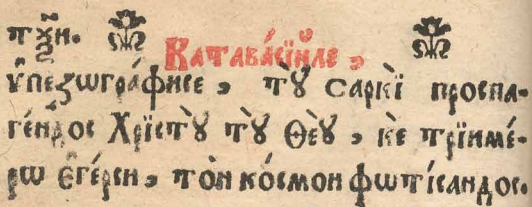 тꙋ҃н. Катава́сїиле,
ѵ҆пезѡгра́фисе, тꙋ̀ саркѝ проспа-
ге́ндос Хрїстꙋ̀ тꙋ̀ Ѳеꙋ̀, кѐ трїиме́-
рѡ є҆ге́рси, то̀н ко́смон фѡті́сандос.